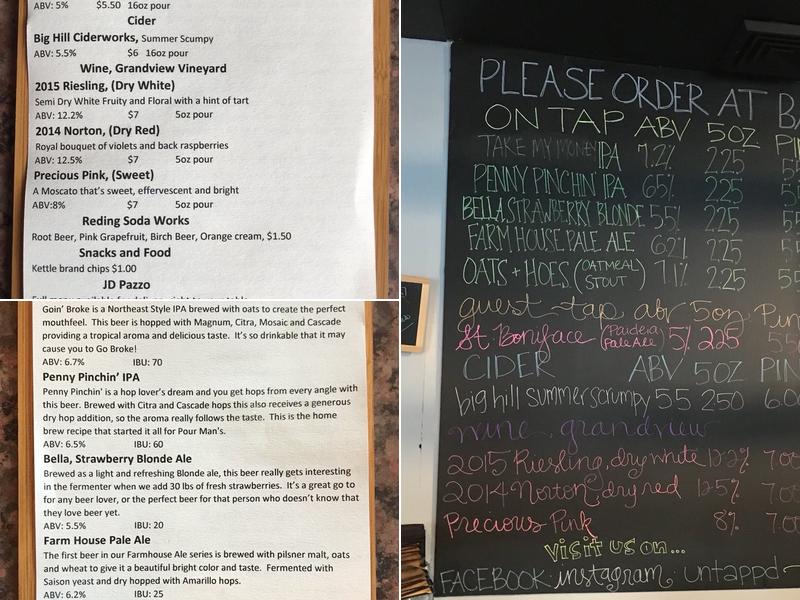 ABV: 5% $5.50 16oz pour
Cider
Big Hill Ciderworks, Summer Scumpy
ABV: 5.5% $6 16oz pour
Wine, Grandview Vineyard
2015 Riesling, (Dry White)
Semi Dry White Fruity and Floral with a hint of tart
ABV: 12.2% $7 5oz pour
2014 Norton, (Dry Red)
Royal bouquet of violets and back raspberries
ABV: 12.5% $7 5oz pour
Precious Pink, (Sweet)
A Moscato that's sweet, effervescent and bright
ABV:8% $7 5oz pour
Reding Soda Works
Root Beer, Pink Grapefruit, Birch Beer, Orange cream, $1.50
Snacks and Food
Kettle brand chips $1.00
JD Pazzo
Goin' Broke is a Northeast Style IPA brewed with oats to create the perfect
mouthfeel. This beer is hopped with Magnum, Citra, Mosaic and Cascade
providing a tropical aroma and delicious taste. It's so drinkable that it may
cause you to Go Broke!
ABV: 6.7% IBU: 70
Penny Pinchin' IPA
Penny Pinchin' is a hop lover's dream and you get hops from every angle with
this beer. Brewed with Citra and Cascade hops this also receives a generous
dry hop addition, so the aroma really follows the taste. This is the home
brew recipe that started it all for Pour Man's.
ABV: 6.5% IBU: 60
Bella, Strawberry Blonde Ale
Brewed as a light and refreshing Blonde ale, this beer really gets interesting
in the fermenter when we add 30 lbs of fresh strawberries. It's a great go to
for any beer lover, or the perfect beer for that person who doesn't know that
they love beer yet.
ABV: 5.5% IBU: 20
Farm House Pale Ale
The first beer in our Farmhouse Ale series is brewed with pilsner malt, oats
and wheat to give it a beautiful bright color and taste. Fermented with
Saison yeast and dry hopped with Amarillo hops.
ABV: 6.2% IBU: 25
PLEASE ORDER AT BA
ON TAP ABV 5OZ PI
TAKE MY MONEY IPA 7.2% 2.25 5
PENNY PINCHIN' IPA 6.5% 2.25 5
BELLA, STRAWBERRY BLONDE 5.5% 2.25 5
FARM HOUSE PALE ALE 6.2% 2.25 5
OATS + HOES (OATMEAL STOUT) 7.1% 2.25 5.5
guest tap abv 5oz Pin
St. Boniface (Paideia Pale Ale) 5% 2.25 5.5
CIDER ABV 5OZ PIN
big hill summer scrumpy 5.5 2.50 6.0
wine, grandview
2015 Riesling, dry white 12.2% 7.00
2014 Norton, dry red 12.5% 7.00
Precious Pink 8% 7.00
visit us on...
FACEBOOK · instagram · untappd